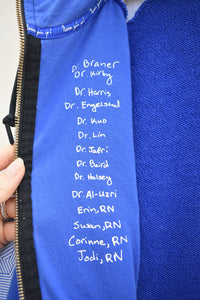 Dr. Braner
Dr. Kirby
Dr. Harris
Dr. Engelstad
Dr. Kuo
Dr. Lin
Dr. Jafri
Dr. Baird
Dr. Halsey
Dr. Al-Uzri
Erin, RN
Susan, RN
Corinne, RN
Jodi, RN